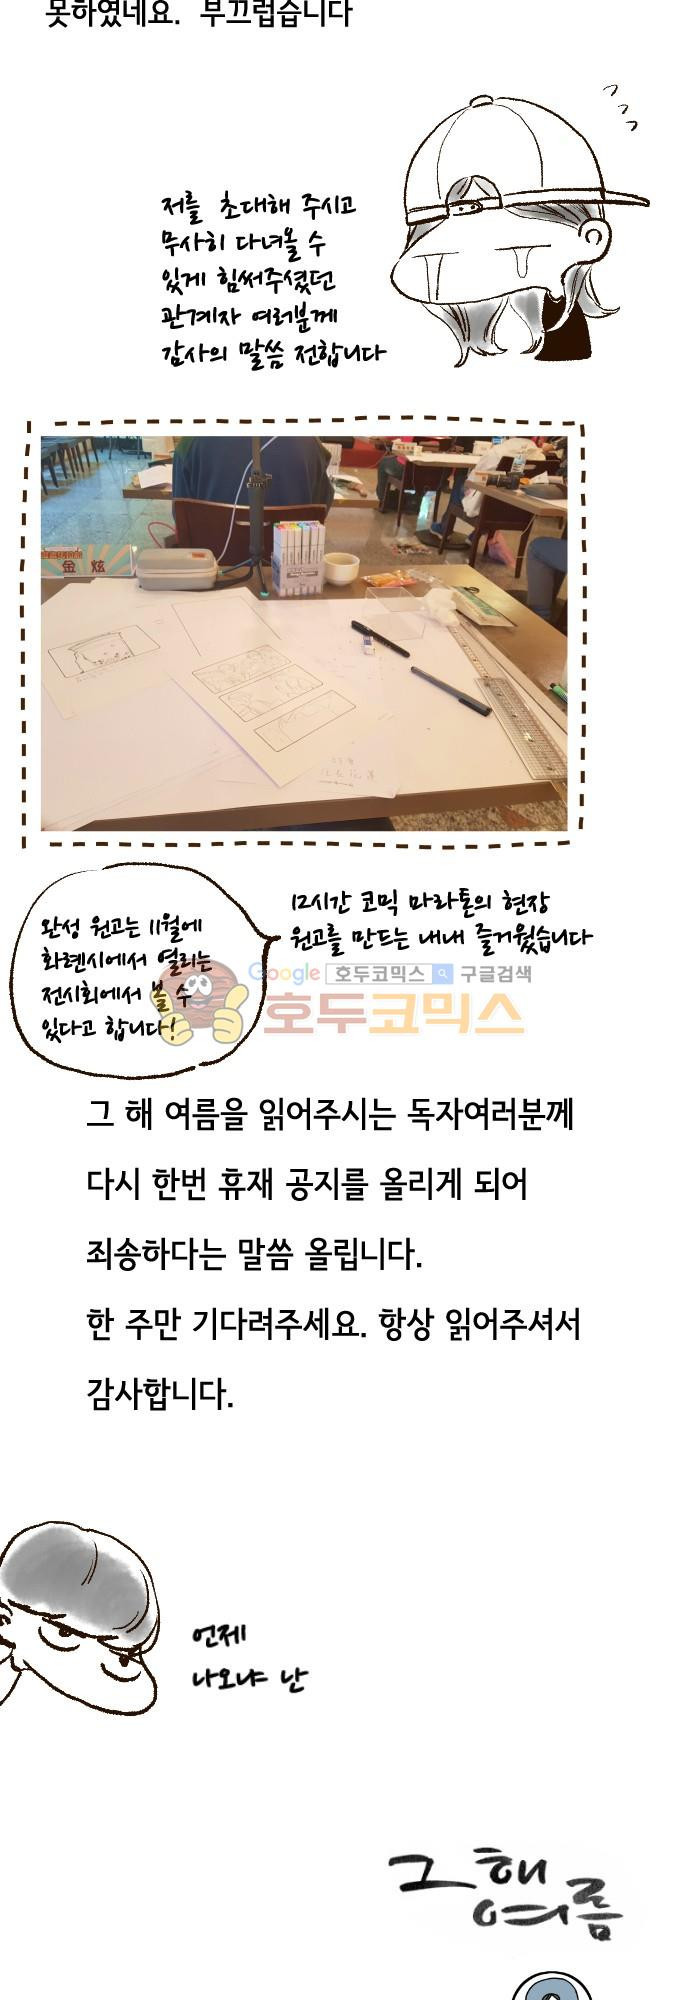 못하였네요. 부끄럽습니다
저를 초대해 주시고
무사히 다녀올 수
있게 힘써주셨던
관계자 여러분께
감사의 말씀 전합니다
金 炫
12시간 코믹 마라톤의 현장
원고를 만드는 내내 즐거웠습니다
완성 원고는 11월에
화롄시에서 열리는
전시회에서 볼 수
있다고 합니다!
Google 호두코믹스 구글검색
호두코믹스
그 해 여름을 읽어주시는 독자여러분께
다시 한번 휴재 공지를 올리게 되어
죄송하다는 말씀 올립니다.
한 주만 기다려주세요. 항상 읽어주셔서
감사합니다.
언제
나오냐 난
그 해
여름